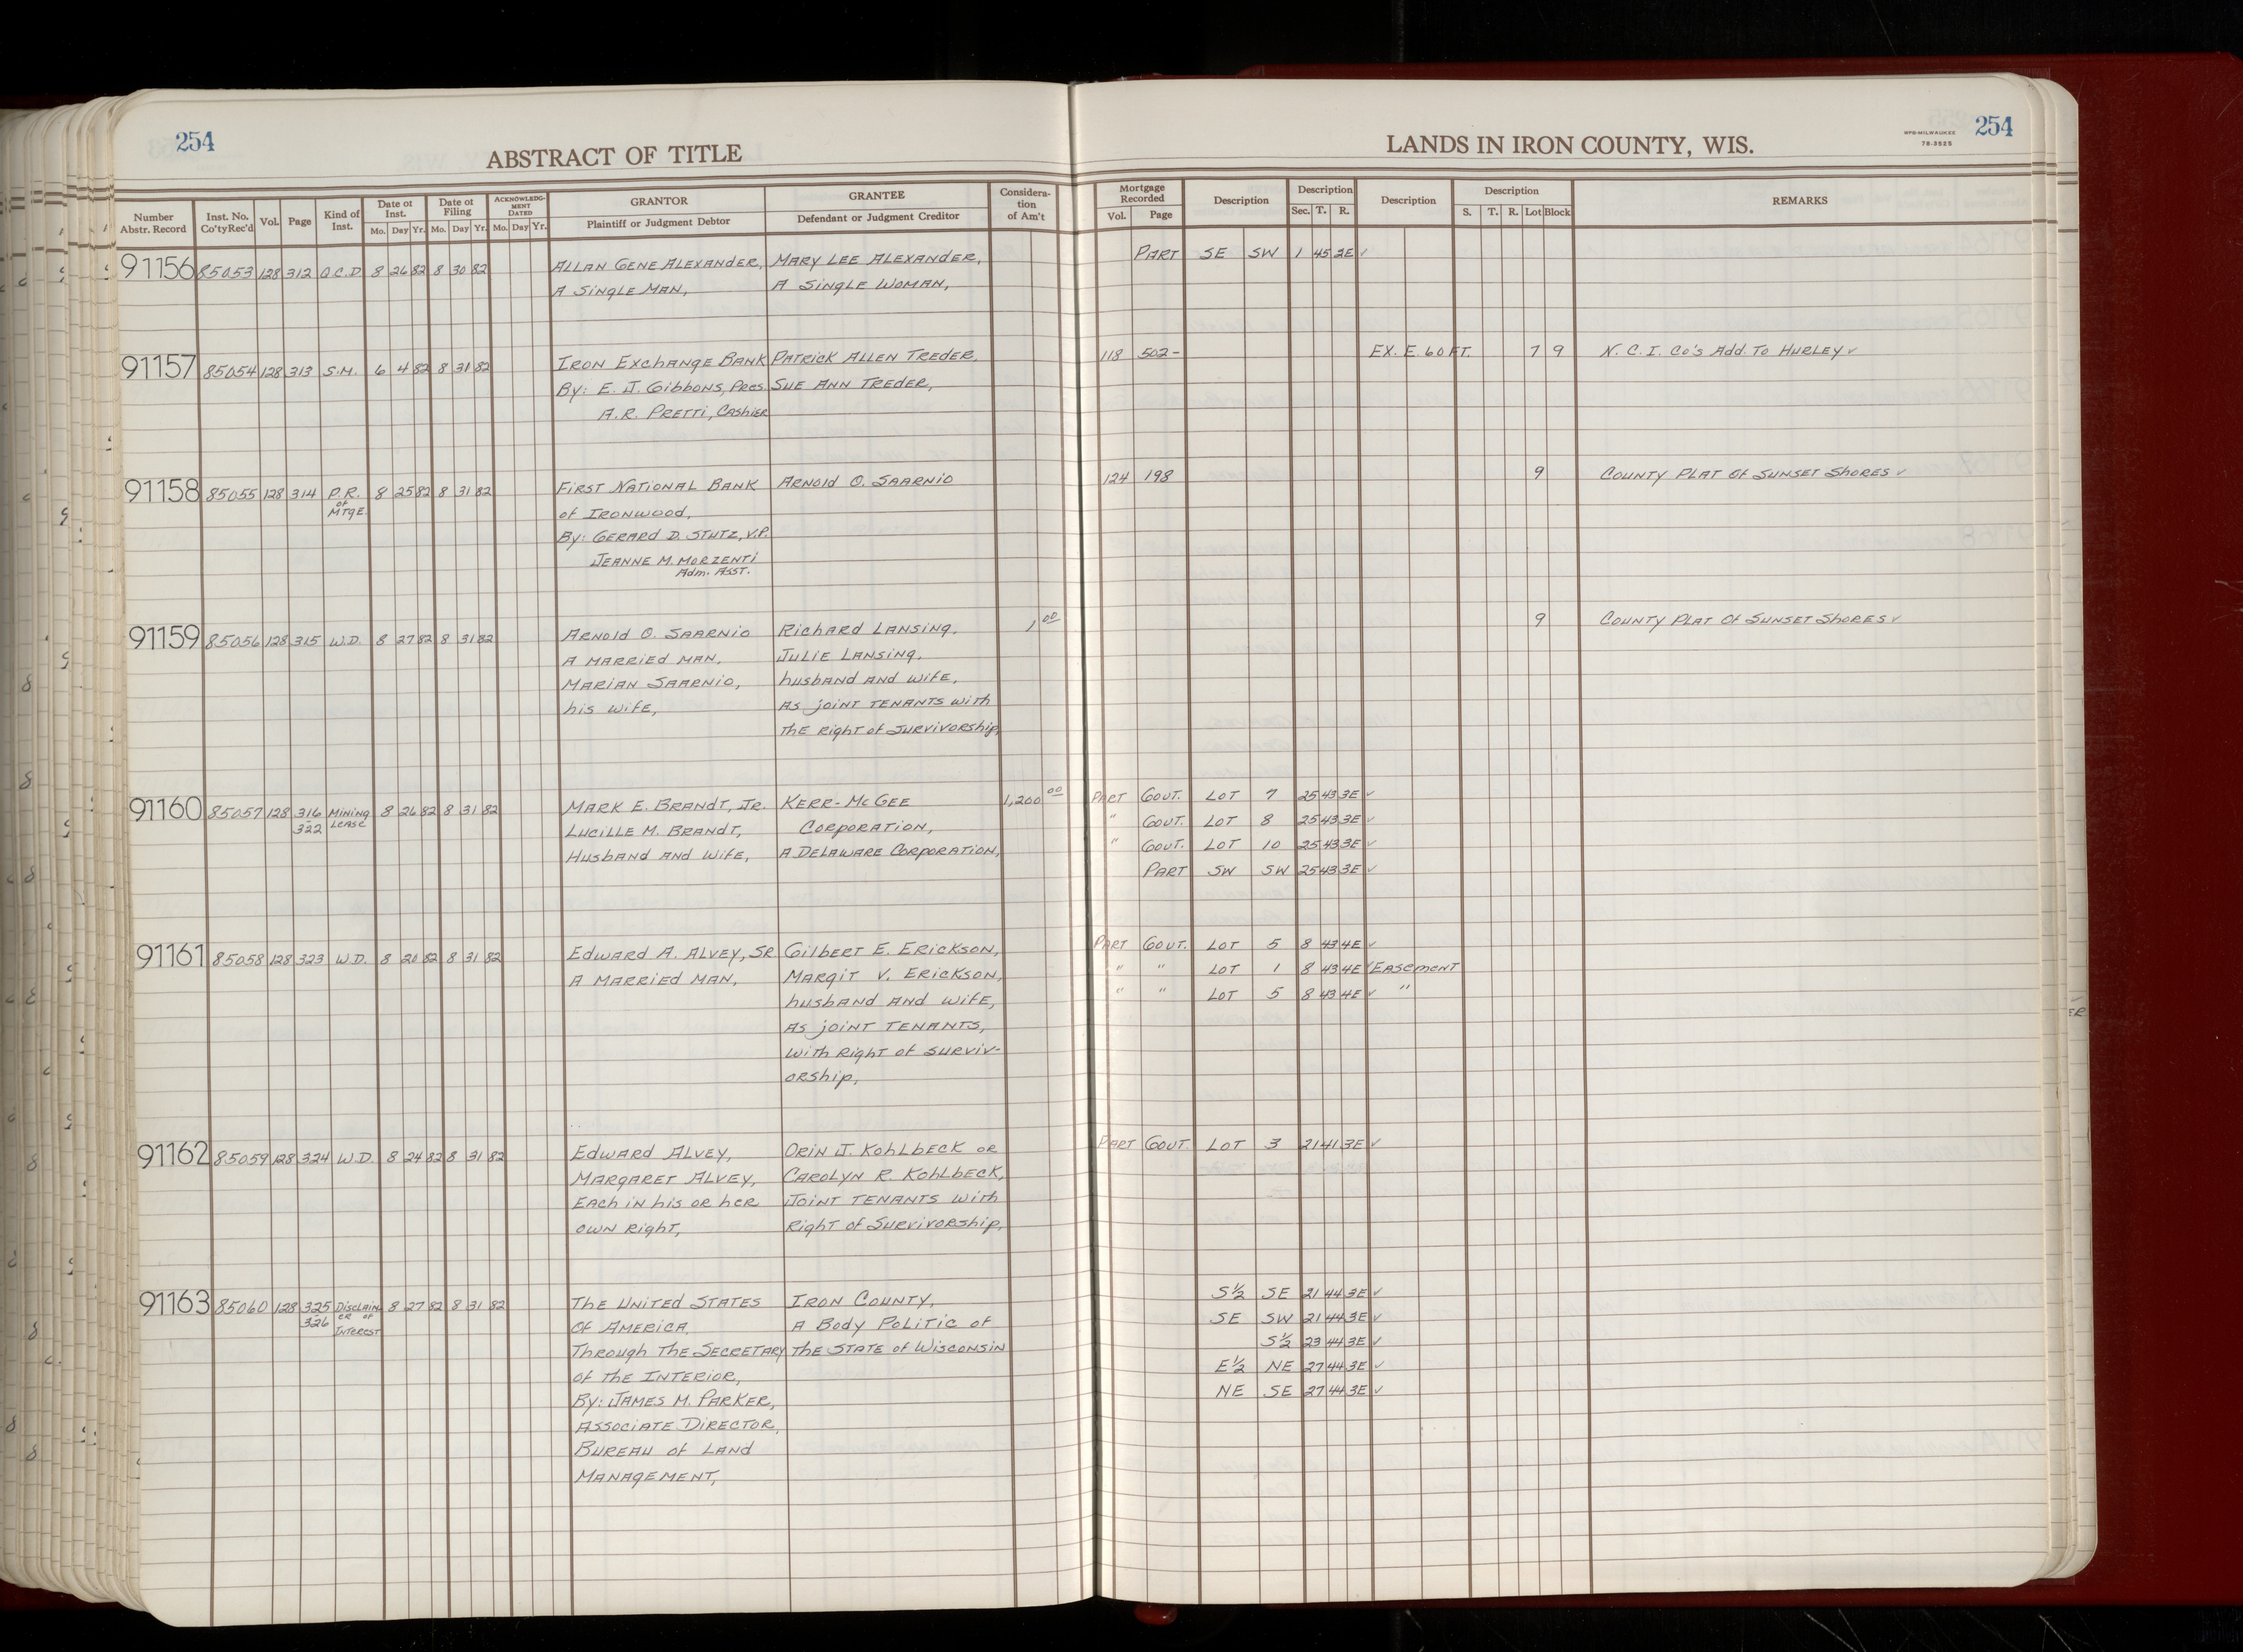 254
ABSTRACT OF TITLE
LANDS IN IRON COUNTY, WIS.
WPB-MILWAUKEE
78-3525
254
Number Abstr. Record | Inst. No. Co'ty Rec'd | Vol. | Page | Kind of Inst. | Date of Inst. Mo. Day Yr. | Date of Filing Mo. Day Yr. | ACKNOWLEDGMENT DATED Mo. Day Yr. | GRANTOR Plaintiff or Judgment Debtor | GRANTEE Defendant or Judgment Creditor | Consideration of Am't | Mortgage Recorded Vol. Page | Description | Description Sec. T. R. | Description | Description S. T. R. Lot Block | REMARKS
91156 85053 128 312 Q.C.D. 8 26 82 8 30 82 ALLAN GENE ALEXANDER, MARY LEE ALEXANDER, PART SE SW 1 45 2E ✓
A SINGLE MAN, A SINGLE WOMAN,
91157 85054 128 313 S.M. 6 4 82 8 31 82 IRON EXCHANGE BANK PATRICK ALLEN TREDER, 118 502- EX. E. 60 FT. 7 9 N.C.I. CO'S ADD. TO HURLEY ✓
By: E. J. GIBBONS, PRES. SUE ANN TREDER,
A.R. PRETTI, CASHIER
91158 85055 128 314 P.R. of MTGE. 8 25 82 8 31 82 FIRST NATIONAL BANK ARNOLD O. SAARNIO 124 198 9 COUNTY PLAT OF SUNSET SHORES ✓
of IRONWOOD,
By: GERARD D. STUTZ, V.P.
JEANNE M. MORZENTI
Adm. ASST.
91159 85056 128 315 W.D. 8 27 82 8 31 82 ARNOLD O. SAARNIO RICHARD LANSING, 1 00 9 COUNTY PLAT OF SUNSET SHORES ✓
A MARRIED MAN, JULIE LANSING,
MARIAN SAARNIO, husband AND wife,
his wife, AS joint TENANTS with
THE RIGHT of SURVIVORSHIP,
91160 85057 128 316-322 MINING LEASE 8 26 82 8 31 82 MARK E. BRANDT, JR. KERR-McGEE 1,200 00 PART GOVT. LOT 7 25 43 3E ✓
LUCILLE M. BRANDT, CORPORATION, " GOVT. LOT 8 25 43 3E ✓
HUSBAND AND WIFE, A DELAWARE CORPORATION, " GOVT. LOT 10 25 43 3E ✓
PART SW SW 25 43 3E ✓
91161 85058 128 323 W.D. 8 20 82 8 31 82 EDWARD A. ALVEY, SR GILBERT E. ERICKSON, PART GOVT. LOT 5 8 43 4E ✓
A MARRIED MAN, MARGIT V. ERICKSON, " " LOT 1 8 43 4E ✓ EASEMENT
husband AND wife, " " LOT 5 8 43 4E ✓ "
AS joint TENANTS,
with Right of SURVIV-
ORSHIP,
91162 85059 128 324 W.D. 8 24 82 8 31 82 EDWARD ALVEY, ORIN J. KOHLBECK OR PART GOVT. LOT 3 21 41 3E ✓
MARGARET ALVEY, CAROLYN R. KOHLBECK,
EACH in his OR her JOINT TENANTS with
OWN Right, Right of SURVIVORSHIP,
91163 85060 128 325 326 DISCLAIMER of INTEREST 8 27 82 8 31 82 THE UNITED STATES IRON COUNTY, S½ SE 21 44 3E ✓
OF AMERICA, A BODY POLITIC of SE SW 21 44 3E ✓
THROUGH THE SECRETARY THE STATE of WISCONSIN S½ 23 44 3E ✓
of THE INTERIOR, E½ NE 27 44 3E ✓
By: JAMES M. PARKER, NE SE 27 44 3E ✓
ASSOCIATE DIRECTOR,
BUREAU of LAND
MANAGEMENT,